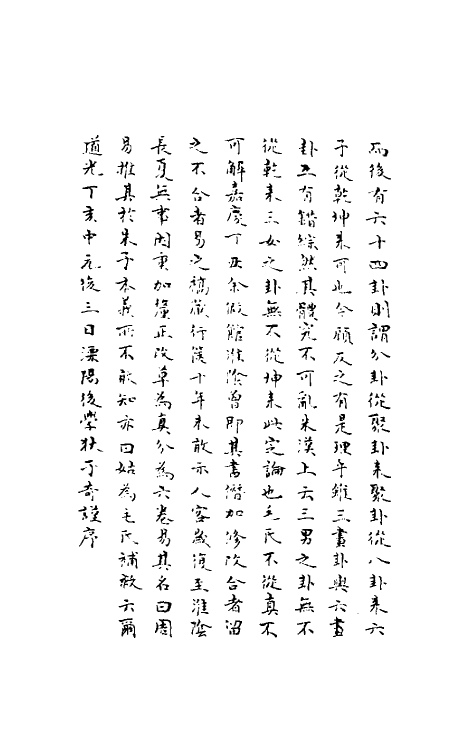 而後有六十四卦則謂分卦從聚卦來聚卦從八卦來六
子從乾坤來可也今顧反之有是理乎雖三畫卦與六畫
卦互有錯綜然其體究不可亂朱漢上云三男之卦無不
從乾來三女之卦無不從坤來此定論也毛氏不從真不
可解嘉慶丁丑余假館淮陰曾即其書僭加修改合者留
之不合者易之稿藏行篋十年未敢示人客歲復至淮陰
長夏無事因更加釐正改草為真分為六卷易其名曰周
易推其於朱子本義所不敢知亦曰姑為毛氏補救云爾
道光丁亥中元後三日溧陽後學狄子奇謹序